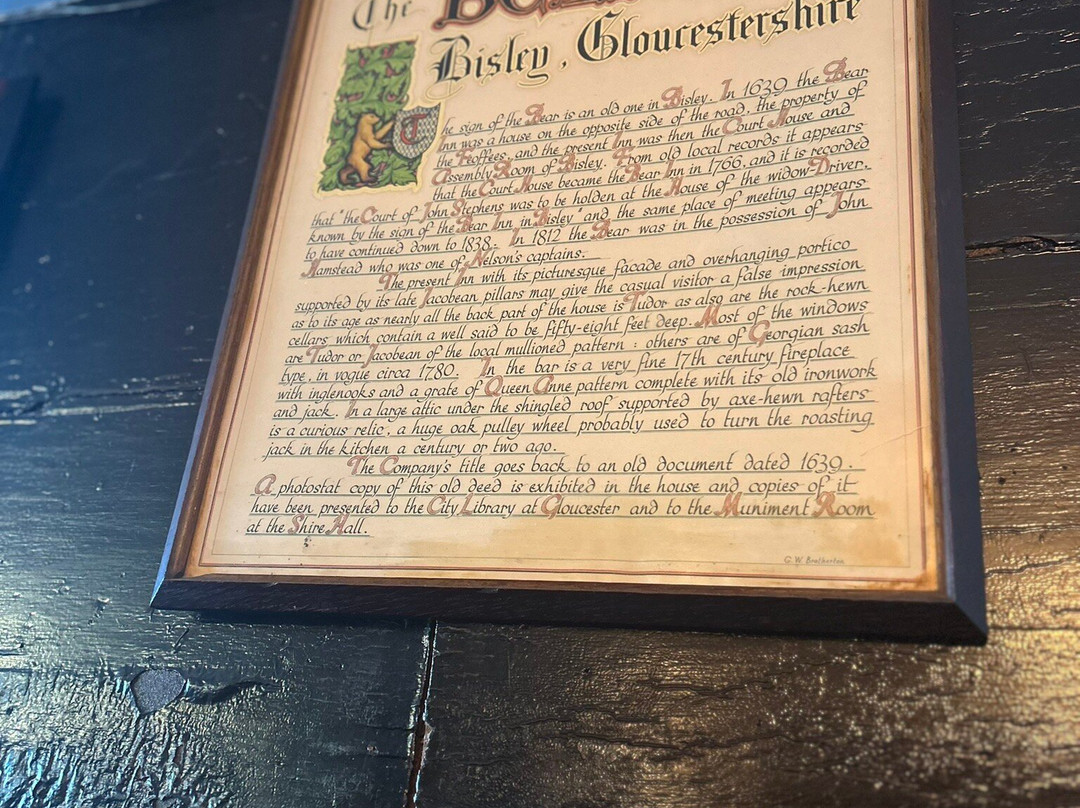 The
Bisley, Gloucestershire
The sign of the Bear is an old one in Bisley. In 1639 the Bear
Inn was a house on the opposite side of the road, the property of
the Feoffees, and the present Inn was then the Court House and
Assembly Room of Bisley. From old local records it appears
that the Court House became the Bear Inn in 1766, and it is recorded
that "the Court of John Stephens was to be holden at the House of the widow Driver,
known by the sign of the Bear Inn in Bisley" and the same place of meeting appears
to have continued down to 1838. In 1812 the Bear was in the possession of John
Hamstead who was one of Nelson's captains.
The present Inn with its picturesque facade and overhanging portico
supported by its late Jacobean pillars may give the casual visitor a false impression
as to its age as nearly all the back part of the house is Tudor as also are the rock-hewn
cellars which contain a well said to be fifty-eight feet deep. Most of the windows
are Tudor or Jacobean of the local mullioned pattern : others are of Georgian sash
type, in vogue circa 1780. In the bar is a very fine 17th century fireplace
with inglenooks and a grate of Queen Anne pattern complete with its old ironwork
and jack. In a large attic under the shingled roof supported by axe-hewn rafters
is a curious relic, a huge oak pulley wheel probably used to turn the roasting
jack in the kitchen a century or two ago.
The Company's title goes back to an old document dated 1639.
A photostat copy of this old deed is exhibited in the house and copies of it
have been presented to the City Library at Gloucester and to the Muniment Room
at the Shire Hall.
G. W. Brotherton